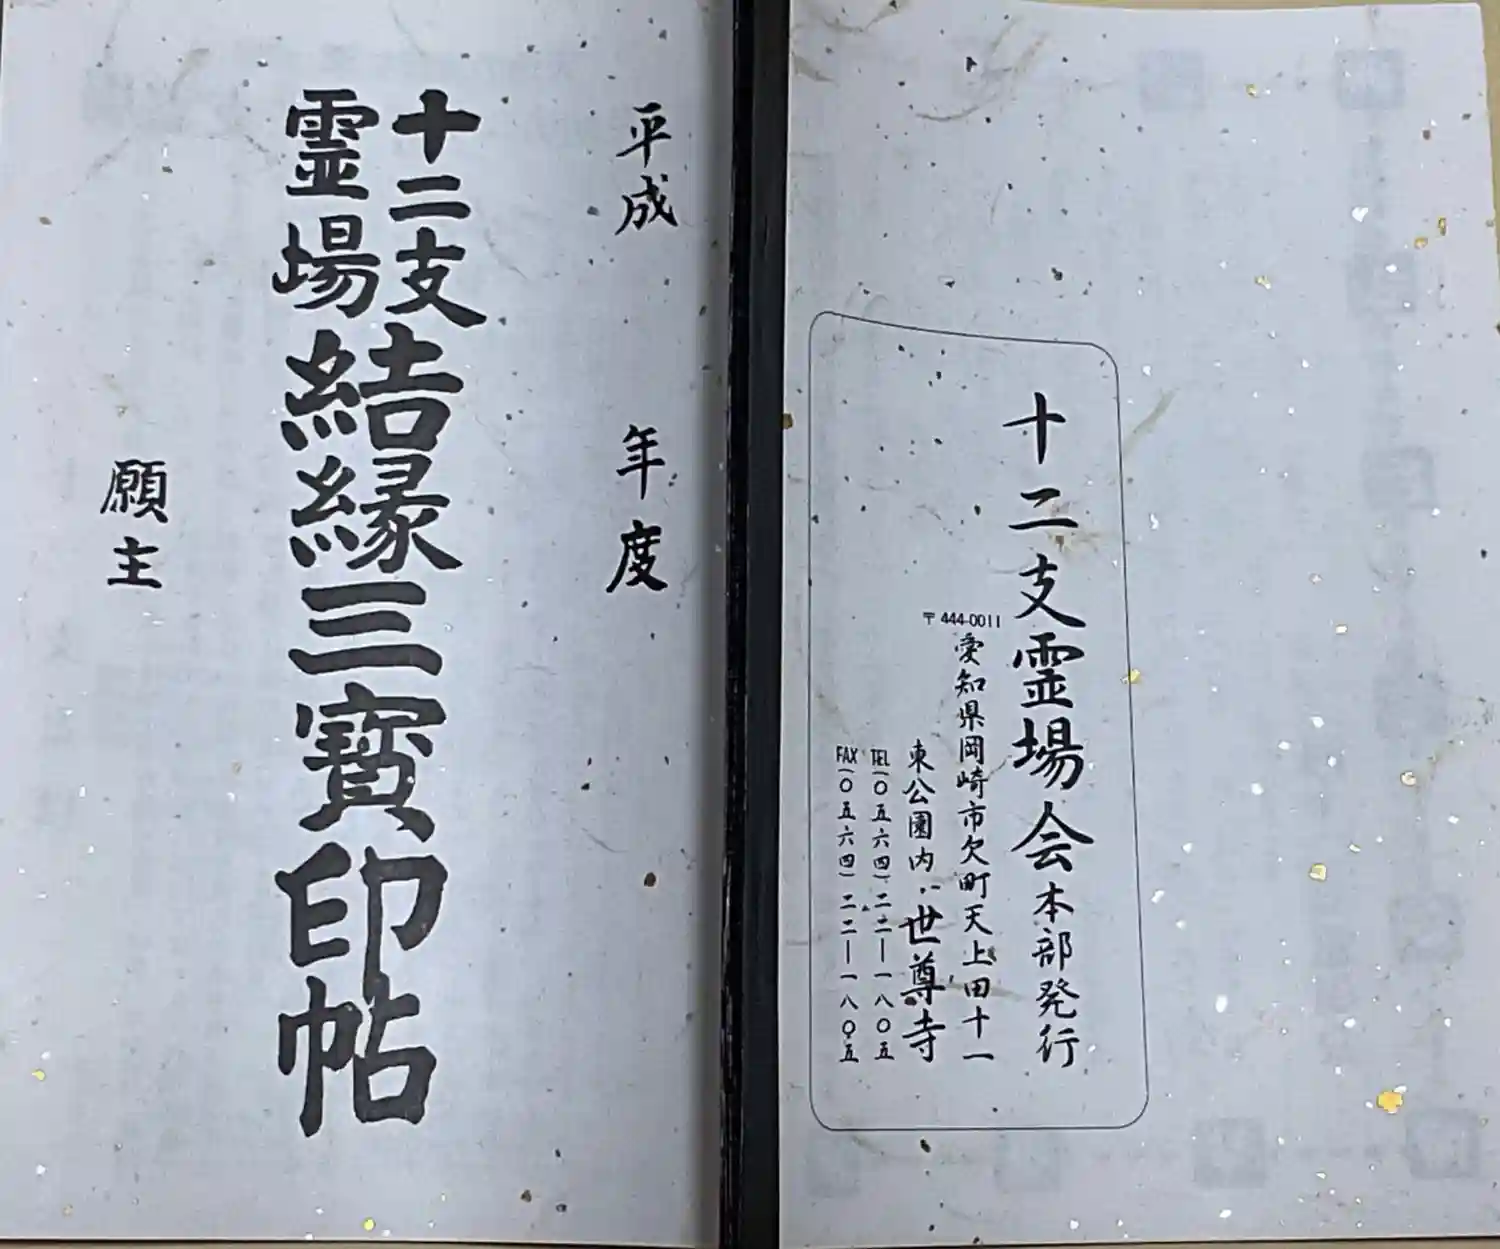 十二支霊場会本部発行
〒444-0011
愛知県岡崎市欠町天上田十一
東公園内・世尊寺
TEL(〇五六四)二二―一八〇五
FAX(〇五六四)二二―一八〇五
平成 年度
十二支
霊場
結縁三寳印帖
願主